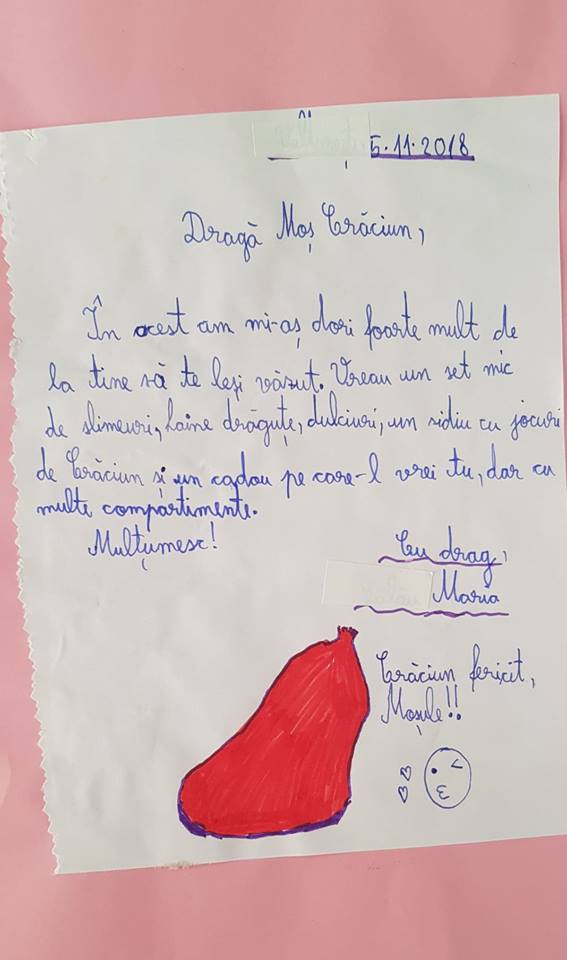 5.11.2018
Dragă Moș Crăciun,
În acest an mi-aș dori foarte mult de
la tine să te lași văzut. Vreau un set mic
de slimeuri, haine drăguțe, dulciuri, un sidiu cu jocuri
de Crăciun și un cadou pe care-l vrei tu, dar cu
multe compartimente.
Mulțumesc!
Cu drag,
Maria
Crăciun fericit,
Moșule!!